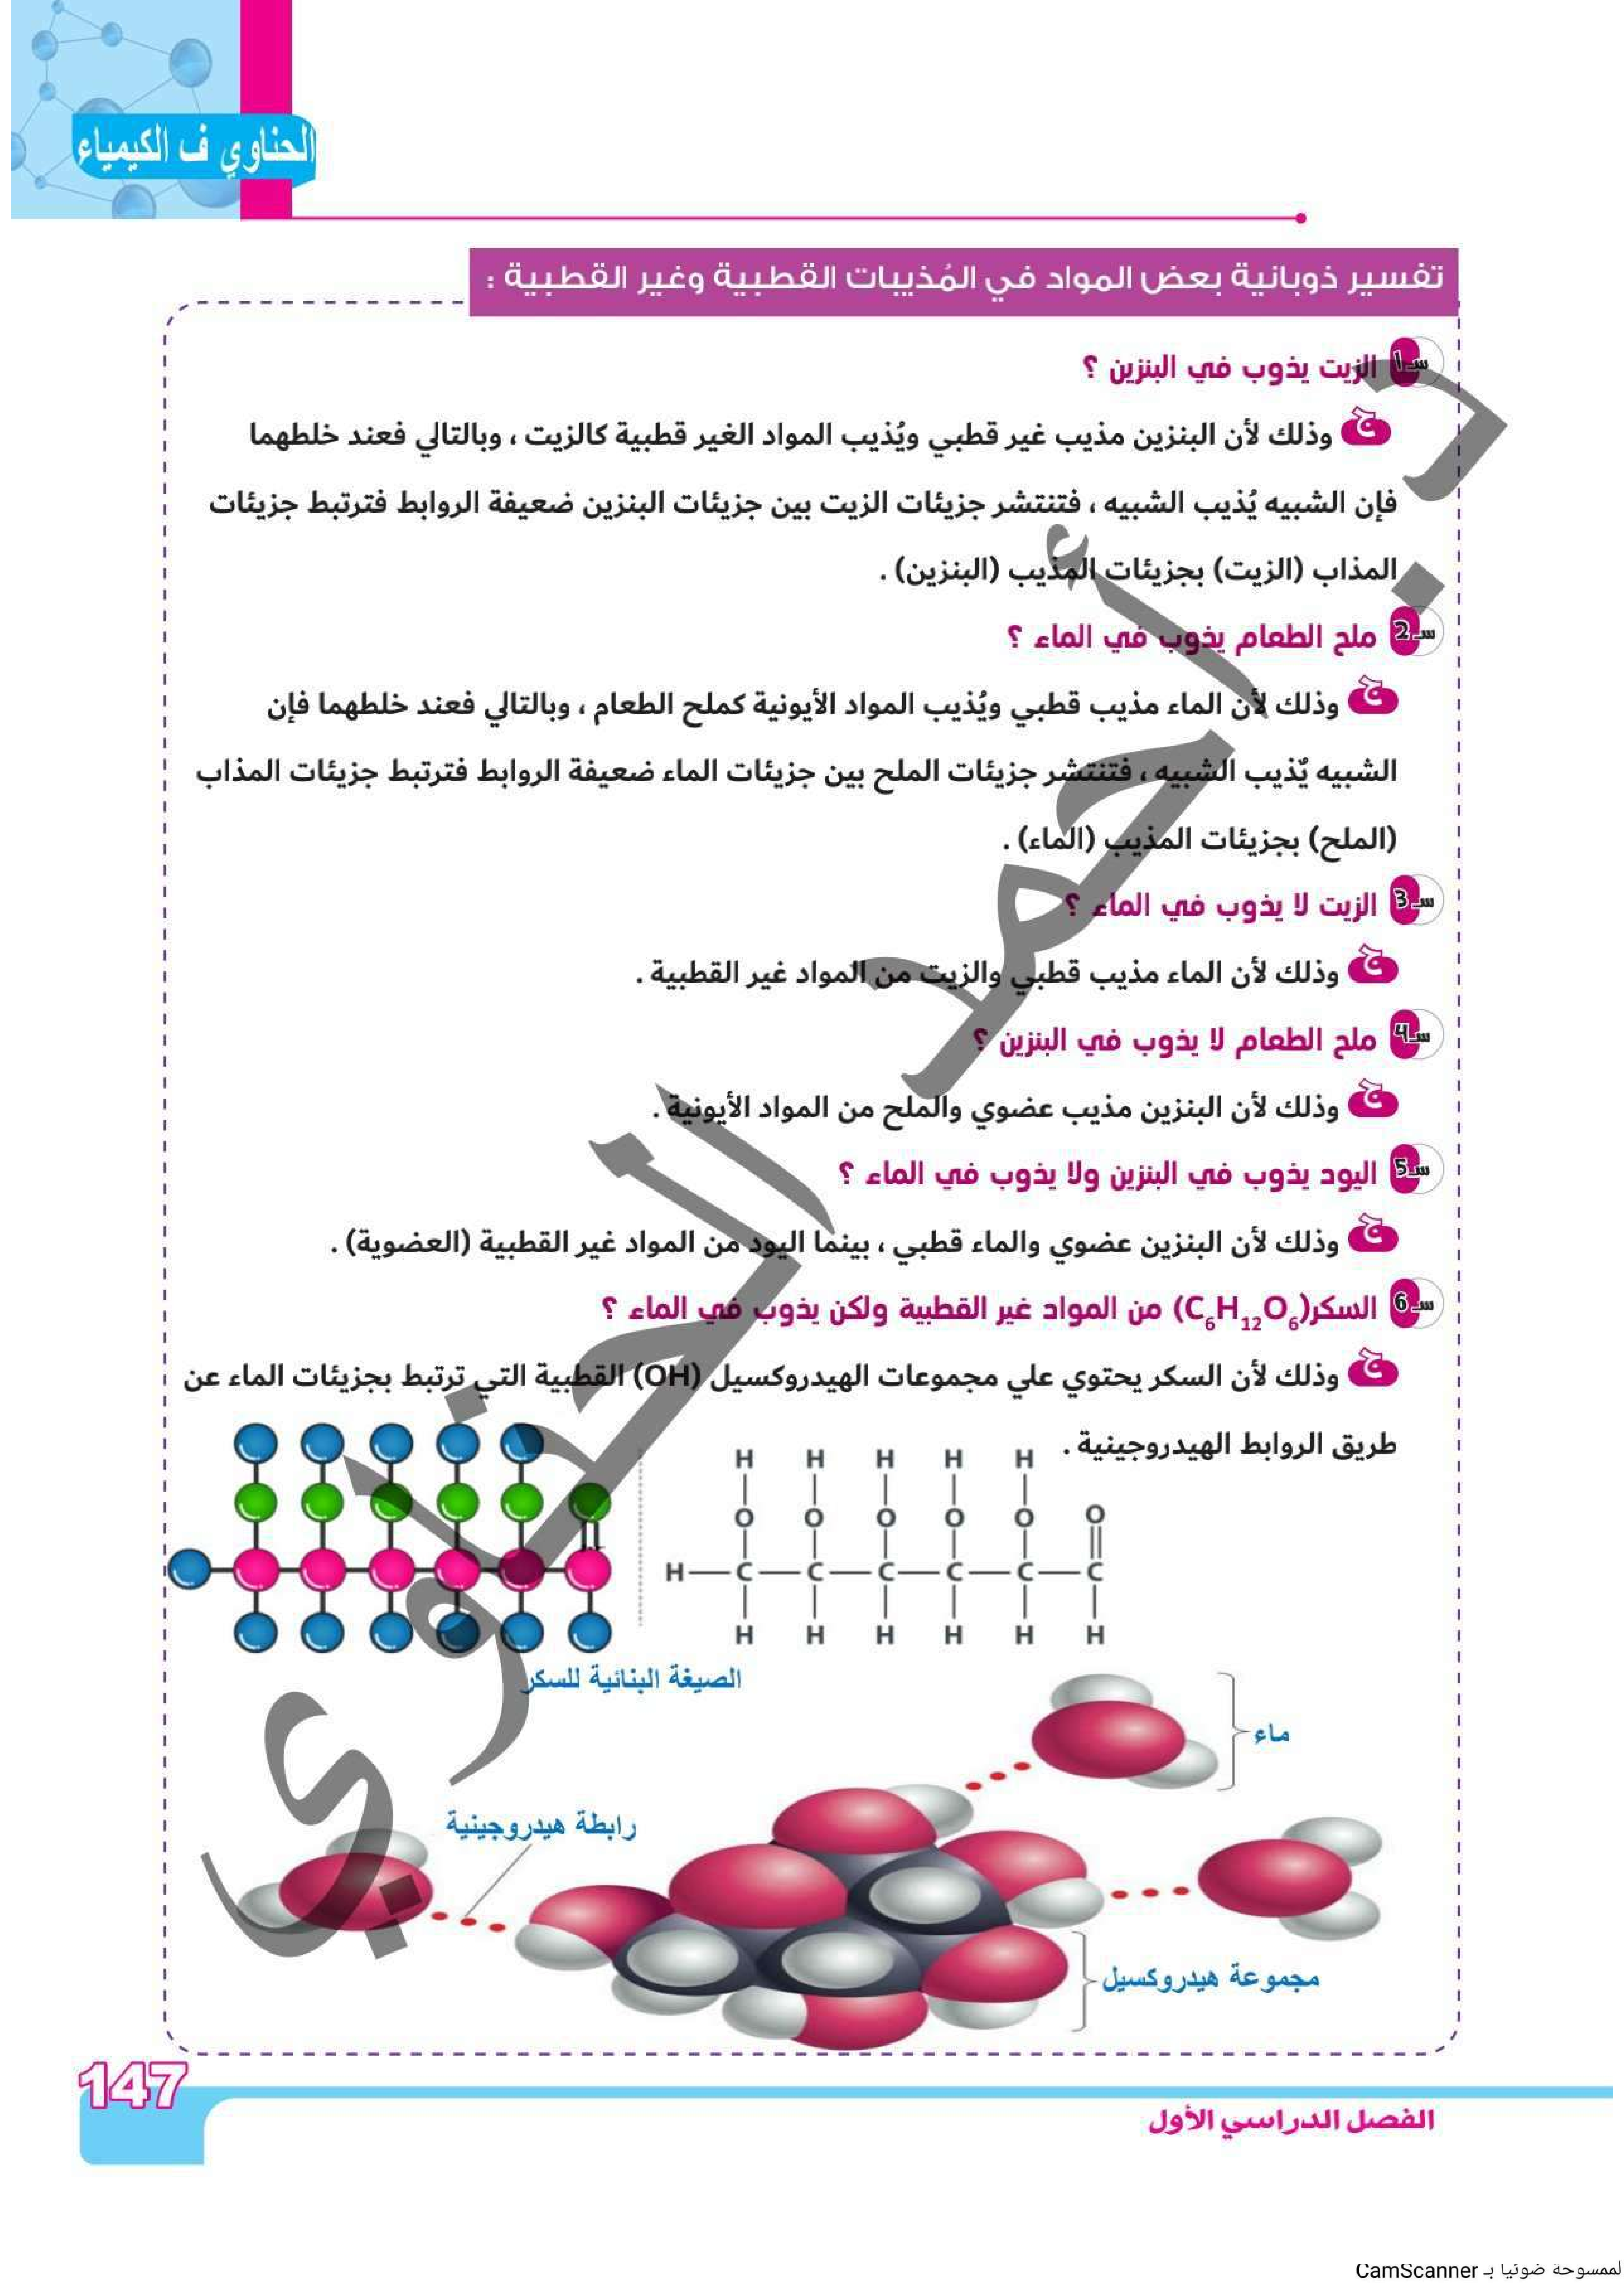 الحناوي ف الكيمياء
تفسير ذوبانية بعض المواد في المُذيبات القطبية وغير القطبية :
سـ1 الزيت يذوب في البنزين ؟
ج وذلك لأن البنزين مذيب غير قطبي ويُذيب المواد الغير قطبية كالزيت ، وبالتالي فعند خلطهما
فإن الشبيه يُذيب الشبيه ، فتنتشر جزيئات الزيت بين جزيئات البنزين ضعيفة الروابط فترتبط جزيئات
المذاب (الزيت) بجزيئات المذيب (البنزين) .
سـ2 ملح الطعام يذوب في الماء ؟
ج وذلك لأن الماء مذيب قطبي ويُذيب المواد الأيونية كملح الطعام ، وبالتالي فعند خلطهما فإن
الشبيه يٌذيب الشبيه ، فتنتشر جزيئات الملح بين جزيئات الماء ضعيفة الروابط فترتبط جزيئات المذاب
(الملح) بجزيئات المذيب (الماء) .
سـ3 الزيت لا يذوب في الماء ؟
ج وذلك لأن الماء مذيب قطبي والزيت من المواد غير القطبية .
سـ4 ملح الطعام لا يذوب في البنزين ؟
ج وذلك لأن البنزين مذيب عضوي والملح من المواد الأيونية .
سـ5 اليود يذوب في البنزين ولا يذوب في الماء ؟
ج وذلك لأن البنزين عضوي والماء قطبي ، بينما اليود من المواد غير القطبية (العضوية) .
سـ6 السكر(C6H12O6) من المواد غير القطبية ولكن يذوب في الماء ؟
ج وذلك لأن السكر يحتوي علي مجموعات الهيدروكسيل (OH) القطبية التي ترتبط بجزيئات الماء عن
طريق الروابط الهيدروجينية .
H H H H H
O O O O O O
H C C C C C C
H H H H H H
الصيغة البنائية للسكر
ماء
رابطة هيدروجينية
مجموعة هيدروكسيل
147
الفصل الدراسي الأول
لممسوحة ضوئيا بـ CamScanner